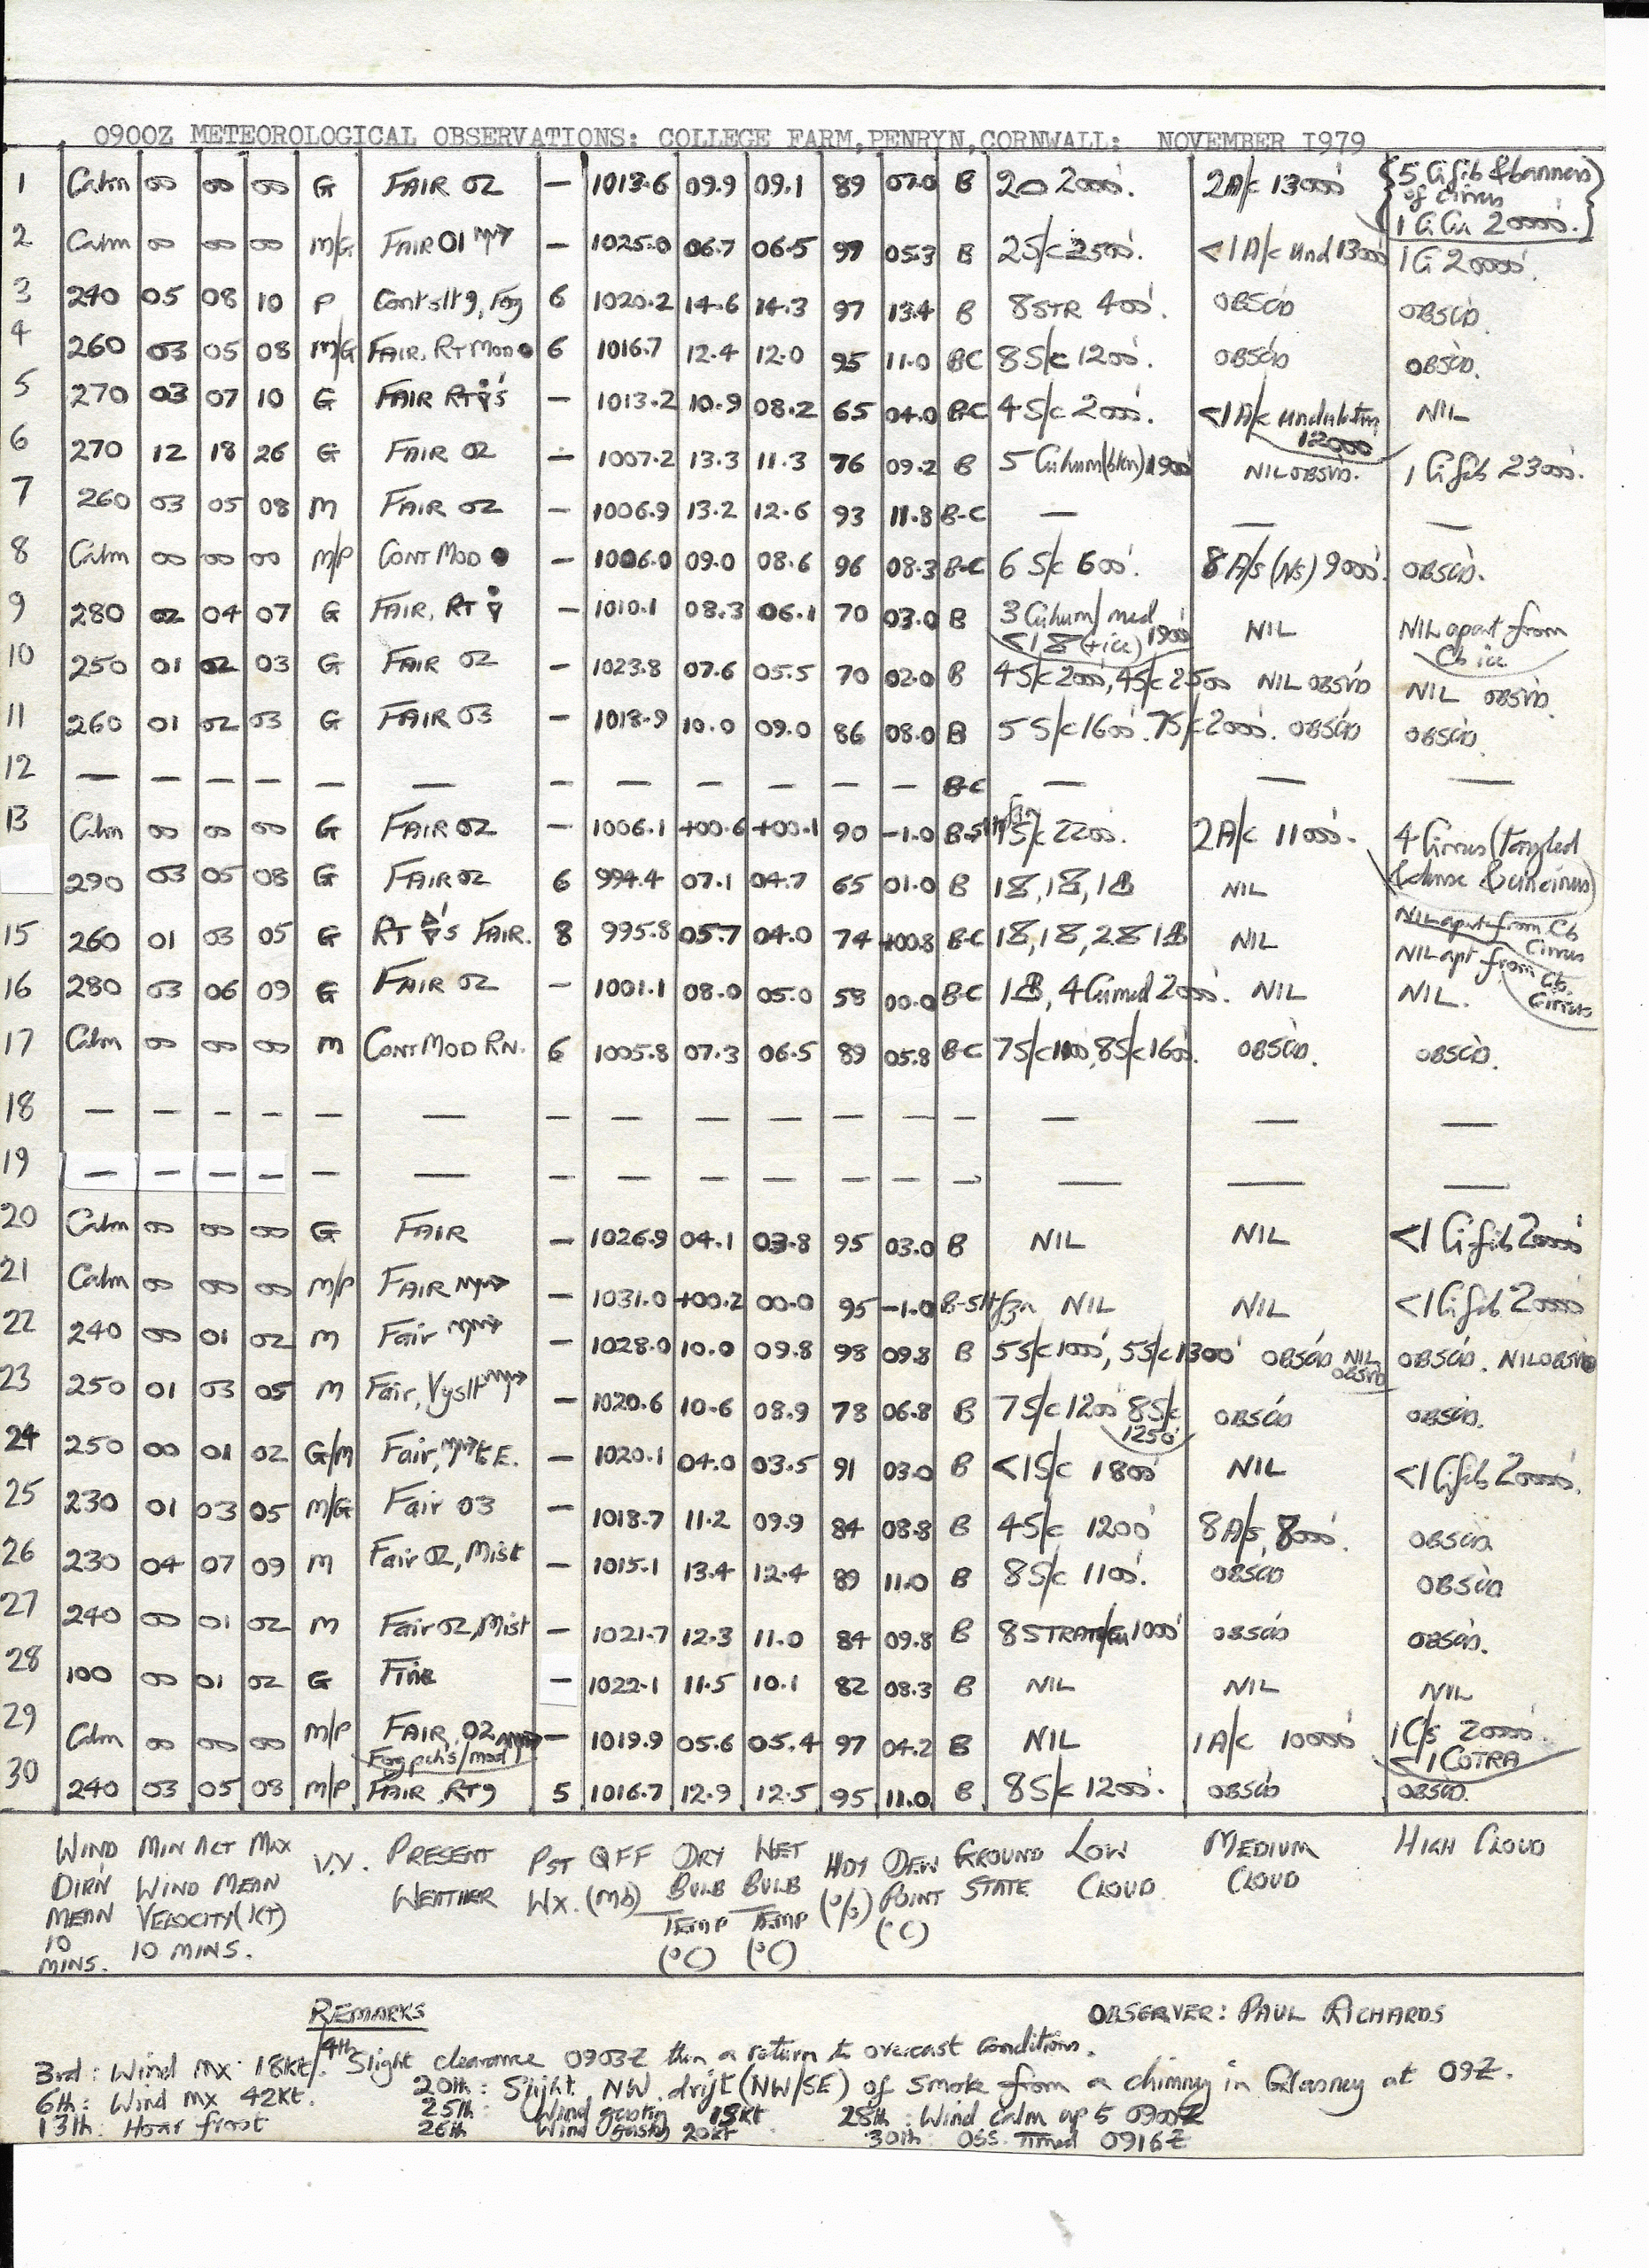 0900Z METEOROLOGICAL OBSERVATIONS: COLLEGE FARM,PENRYN,CORNWALL: NOVEMBER I979
1 Calm 00 00 00 G FAIR 02 — 1013.6 09.9 09.1 89 07.0 B 2000'. 2A/c 13000' {5 Ci fib & banners of cirrus 1 CiCu 20000'.}
2 Calm 00 00 00 M/G FAIR 01 — 1025.0 06.7 06.5 97 05.3 B 2S/c 2500'. <1 A/c und 13000' 1 Ci 20000'.
3 240 05 08 10 P Cont slt 9, Fog 6 1020.2 14.6 14.3 97 13.4 B 8STR 400'. OBSCD OBSCD.
4 260 03 05 08 M/G FAIR, RT MOD ● 6 1016.7 12.4 12.0 95 11.0 BC 8S/c 1200'. OBSCD OBSCD.
5 270 03 07 10 G FAIR RT 's — 1013.2 10.9 08.2 65 04.0 B-C 4S/c 2000'. <1A/c undulatus 12000' NIL
6 270 12 18 26 G FAIR 02 — 1007.2 13.3 11.3 76 09.2 B 5 Cuhum(bkn) 1900' NIL OBSVD. 1 Ci fib 23000'.
7 260 03 05 08 M FAIR 02 — 1006.9 13.2 12.6 93 11.8 B-C — — —
8 Calm 00 00 00 M/P CONT MOD ● — 1006.0 09.0 08.6 96 08.3 B-C 6 S/c 600'. 8 A/s (Ns) 9000'. OBSCD.
9 280 02 04 07 G FAIR, RT — 1010.1 08.3 06.1 70 03.0 B 3 Cuhum/med <1 (+ice) 1900' NIL NIL apart from Cb ice
10 250 01 02 03 G FAIR 02 — 1023.8 07.6 05.5 70 02.0 B 4S/c 2000', 4S/c 2500 NIL OBSVD NIL OBSVD.
11 260 01 02 03 G FAIR 03 — 1018.9 10.0 09.0 86 08.0 B 5 S/c 1600'. 7S/c 2000'. OBSCD OBSCD.
12 — — — — — — — — — — — — B-C — — —
13 Calm 00 00 00 G FAIR 02 — 1006.1 +00.6 +00.1 90 -1.0 B-slt fzn 1S/c 2200'. 2A/c 11000'. 4 Cirrus (Tangled & dense & uncinus)
290 03 05 08 G FAIR 02 6 994.4 07.1 04.7 65 01.0 B NIL NIL apart from Cb Cirrus
15 260 01 03 05 G RT 's FAIR. 8 995.8 05.7 04.0 74 +00.8 B-C NIL NIL apt from Cb. Cirrus
16 280 03 06 09 G FAIR 02 — 1001.1 08.0 05.0 58 00.0 B-C 4 Cumed 2000'. NIL NIL.
17 Calm 00 00 00 M CONT MOD RN. 6 1005.8 07.3 06.5 89 05.8 B-C 7S/c 1100', 8S/c 1600'. OBSCD. OBSCD.
18 — — — — — — — — — — — — — — — —
19 — — — — — — — — — — — — — — — —
20 Calm 00 00 00 G FAIR — 1026.9 04.1 03.8 95 03.0 B NIL NIL <1 Ci fib 20000'
21 Calm 00 00 00 M/P FAIR — 1031.0 +00.2 00.0 95 -1.0 B-slt fzn NIL NIL <1 Ci fib 20000
22 240 00 01 02 M Fair — 1028.0 10.0 09.8 98 09.8 B 5S/c 1000', 5S/c 1300' OBSCD NIL OBSVD OBSCD. NIL OBSVD
23 250 01 03 05 M Fair, Vy slt — 1020.6 10.6 08.9 78 06.8 B 7S/c 1200' 8S/c 1250' OBSCD OBSCD.
24 250 00 01 02 G/M Fair, to E. — 1020.1 04.0 03.5 91 03.0 B <1S/c 1800' NIL <1 Ci fib 20000'.
25 230 01 03 05 M/G Fair 03 — 1018.7 11.2 09.9 84 08.8 B 4S/c 1200' 8 A/s, 8000'. OBSCD.
26 230 04 07 09 M Fair 02, Mist — 1015.1 13.4 12.4 89 11.0 B 8S/c 1100'. OBSCD OBSCD
27 240 00 01 02 M Fair 02, Mist — 1021.7 12.3 11.0 84 09.8 B 1000' OBSCD OBSCD.
28 100 00 01 02 G Fine — 1022.1 11.5 10.1 82 08.3 B NIL NIL NIL
29 Calm 00 00 00 M/P FAIR, 02 Fog pch's/mod — 1019.9 05.6 05.4 97 04.2 B NIL 1A/c 10000' 1C/s 20000'. <1 COTRA
30 240 03 05 03 M/P FAIR RT 9 5 1016.7 12.9 12.5 95 11.0 B 8S/c 1200'. OBSCD OBSCD.
WIND MIN ACT MAX V.V. PRESENT PST QFF DRY WET HDY DEW GROUND LOW MEDIUM HIGH CLOUD
DIRN WIND MEAN WEATHER WX. (Mb) BULB BULB (%) POINT STATE CLOUD CLOUD
MEAN VELOCITY(KT) TEMP TEMP (°C)
10 10 MINS. (°C) (°C)
MINS.
REMARKS OBSERVER: PAUL RICHARDS
3rd: Wind mx 18kt/. 4th Slight clearance 0903Z then a return to overcast conditions.
6th: Wind mx 42kt. 20th: Slight NW drift (NW/SE) of smoke from a chimney in Glasney at 09Z.
13th: Hoar frost 25th: Wind gusting 18kt 28th: Wind calm up to 0900Z
26th Wind gusting 20kt 30th: OSS. Timed 0916Z